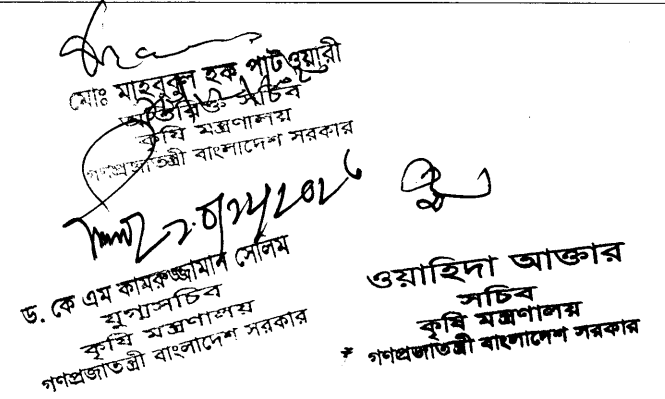 মোঃ মাহবুবুল হক পাটওয়ারী
অতিরিক্ত সচিব
কৃষি মন্ত্রণালয়
গণপ্রজাতন্ত্রী বাংলাদেশ সরকার
ড. কে এম কামরুজ্জামান সেলিম
যুগ্মসচিব
কৃষি মন্ত্রণালয়
গণপ্রজাতন্ত্রী বাংলাদেশ সরকার
ওয়াহিদা আক্তার
সচিব
কৃষি মন্ত্রণালয়
গণপ্রজাতন্ত্রী বাংলাদেশ সরকার